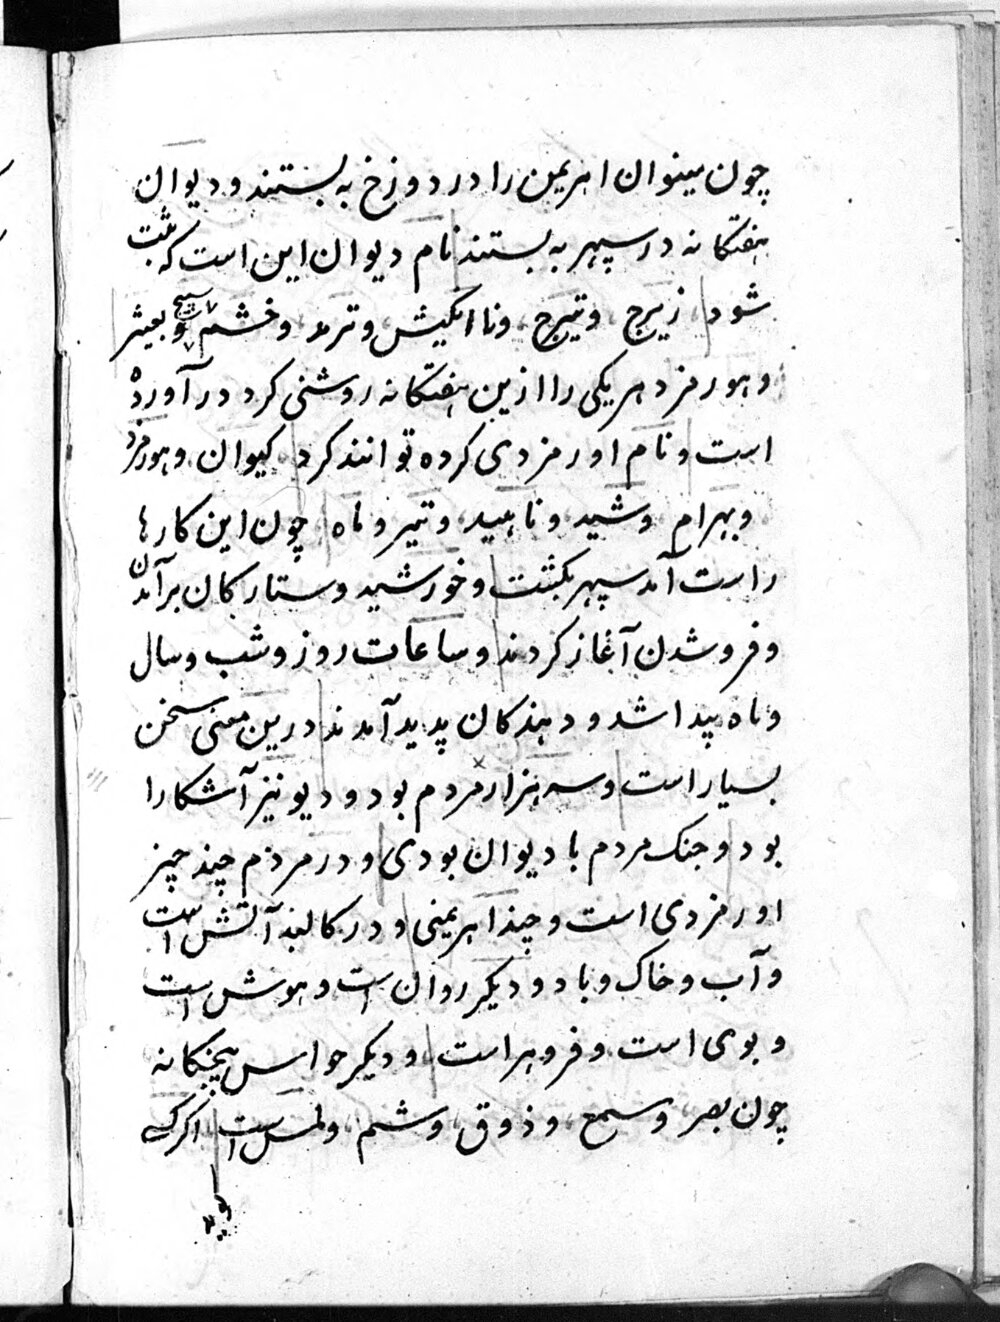 چون مینوان اهریمن را در دوزخ به بستند و دیوان
هفتکانه در سپهر به بستند نام دیوان این است که ثبت
شود زیرج وتیرج ونا انکیش و ترمد و خشم و سیج و بعیشر
و هورمزد هریکی را ازین هفتکانه روشنی کرد در آورده
است و نام اورمزدی کرده توانند کرد کیوان و هورمزد
وبهرام وشید و ناهید وتیر و ماه چون این کارها
راست آمد سپهر بکشت و خورشید و ستارکان برآمدن
و فروشدن آغاز کردند و ساعات روز و شب و سال
و ماه پیدا شد و دهندکان پدید آمدند درین معنی سخن
بسیار است و سه هزار مردم بود و دیو نیز آشکارا
بود و جنک مردم با دیوان بودی و در مردم چند چیز
اورمزدی است و چند اهریمنی و در کالبد آتش است
و آب و خاک و باد و دیکر روان است و هوش است
و بوی است و فروهر است و دیکر حواس پنجکانه
چون بصر وسمع وذوق وشم ولمس است اکر کسے
کوید